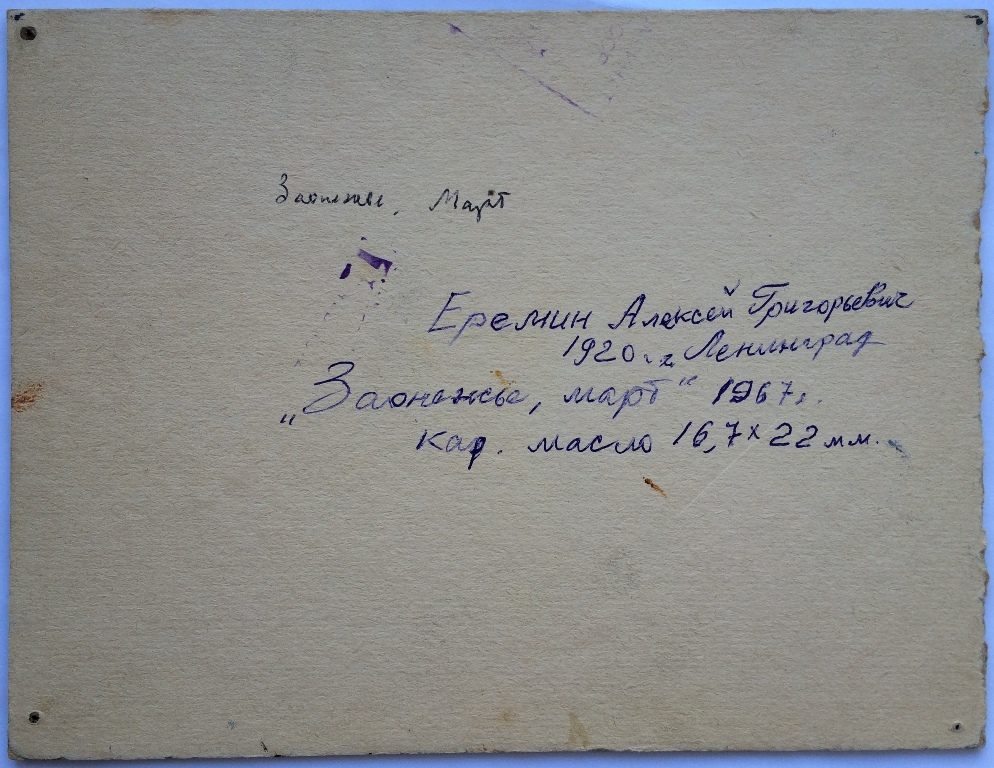 Заонежье, Март
Еремин Алексей Григорьевич
1920 г. г. Ленинград
„Заонежье, март“ 1967 г.
кар. масло 16,7 x 22 мм.